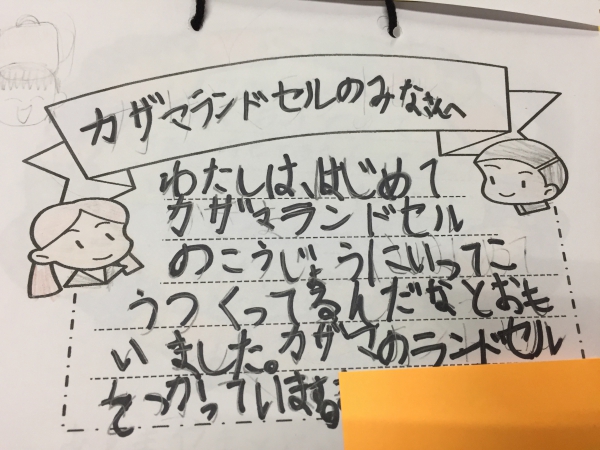 カザマランドセルのみなさんへ
わたしは、はじめて
カザマランドセル
のこうじょうにいってこ
うつくってるんだなとおも
いました。カザマのランドセル
をつかっています